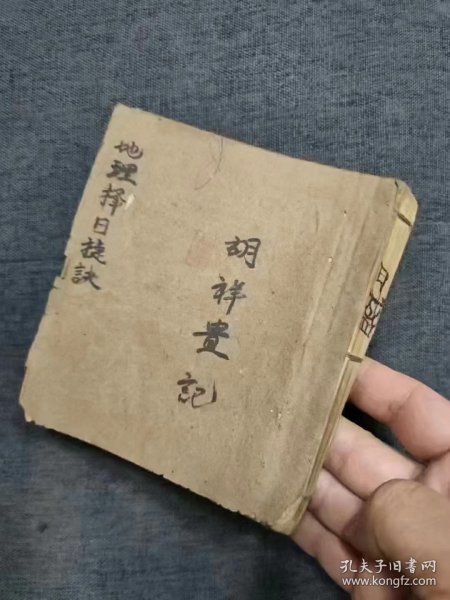 地理择日捷訣
胡祥貴記
孔夫子旧书网
www.kongfz.com